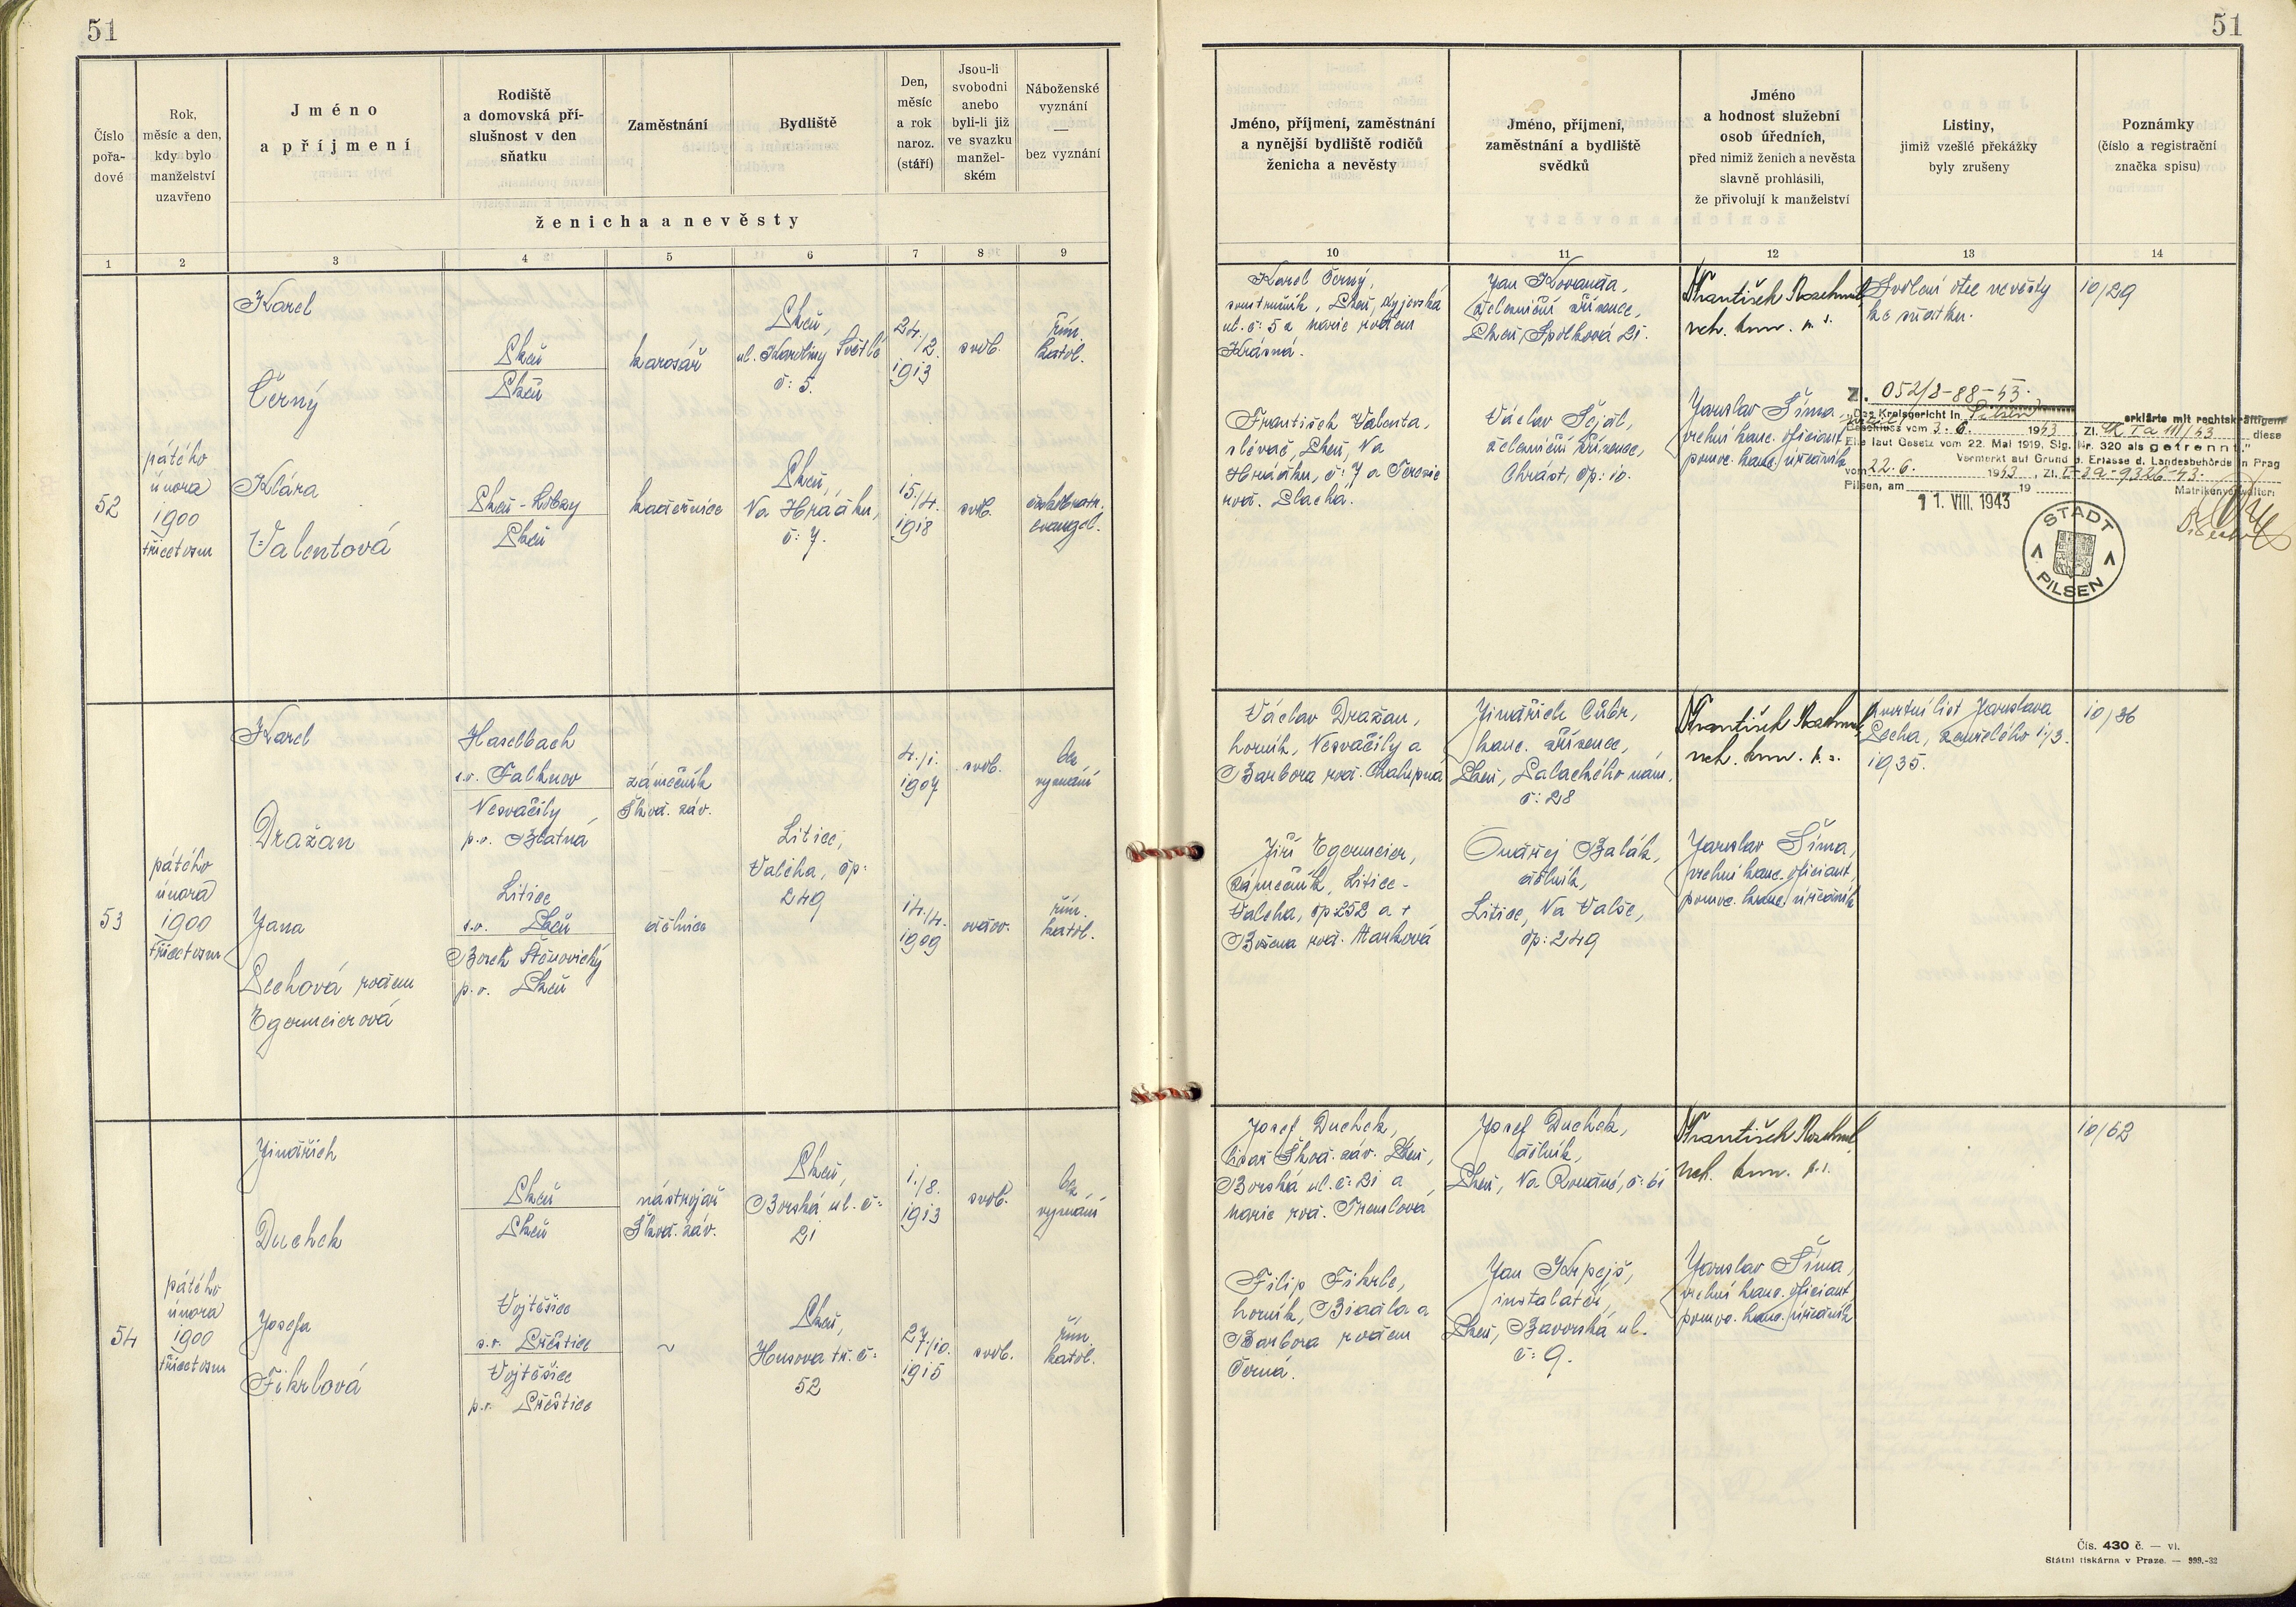 51
51
Číslo
pořa-
dové
Rok,
měsíc a den,
kdy bylo
manželství
uzavřeno
Jméno
a příjmení
Rodiště
a domovská pří-
slušnost v den
sňatku
Zaměstnání
Bydliště
Den,
měsíc
a rok
naroz.
(stáří)
Jsou-li
svobodni
anebo
byli-li již
ve svazku
manžel-
ském
Náboženské
vyznání
—
bez vyznání
ženicha a nevěsty
Jméno, příjmení, zaměstnání
a nynější bydliště rodičů
ženicha a nevěsty
Jméno, příjmení,
zaměstnání a bydliště
svědků
Jméno
a hodnost služební
osob úředních,
před nimiž ženich a nevěsta
slavně prohlásili,
že přivolují k manželství
Listiny,
jimiž vzešlé překážky
byly zrušeny
Poznámky
(číslo a registrační
značka spisu)
1 2 3 4 5 6 7 8 9 10 11 12 13 14
52
pátého
února
1900
třicetosm
Karel
Černý
Plzeň
Plzeň
karosář
Plzeň,
ul. Karoliny Světlé
č: 5.
24./2.
1913
svob.
řím.
katol.
Klára
Valentová
Plzeň-Lobzy
Plzeň
kadeřnice
Plzeň,
Na Hrádku,
č: 7.
15./4.
1918
svob.
českobratr.
evangel.
Karel Černý,
soustružník, Plzeň, Kyjevská
ul. č: 5 a Marie rodem
Krásná.
František Valenta,
slévač, Plzeň, Na
Hrádku, č: 7 a Terezie
rod. Plachá.
Jan Kovanda,
železniční zřízenec,
Plzeň, Spolková 21.
Václav Šejál,
železniční zřízenec,
Chrást, čp: 10.
František
Jaroslav Šíma,
vrchní kanc. oficiant,
pomoc. kanc. úředník
Svolení otce nevěsty
ke sňatku.
10/29
Z. 052/2-88-43.
„Das Kreisgericht in Pilsen erklärte mit rechtskräftigem
Beschluss vom 3. 6. 1943 Zl. Ck Ia 111/43 diese
Ehe laut Gesetz vom 22. Mai 1919, Slg. Nr. 320 als getrennt."
Vermerkt auf Grund d. Erlasse d. Landesbehörde in Prag
vom 22. 6. 1943, Zl. I-3a-9326-43.
Pilsen, am 19
Matrikenverwalter:
11. VIII. 1943
STADT
PILSEN
53
pátého
února
1900
třicetosm
Karel
Dražan
Haselbach
s.o. Falknov
Nesvačily
p.o. Blatná
zámečník
Škod. záv.
Litice,
Valcha, čp:
249
4./1.
1907
svob.
bez
vyznání
Jana
Pechová rodem
Egermeierová
Litice
s.o. Plzeň
Borek Štěnovický
p.o. Plzeň
dělnice
14./4.
1909
ovdov.
řím.
katol.
Václav Dražan,
horník, Nesvačily a
Barbora rod. Chalupná
Jiří Egermeier,
zámečník, Litice-
Valcha, čp 252 a +
Božena rod. Marková
Jindřich Cůbr,
kanc. zřízenec,
Plzeň, Palackého nám.
č: 28
Ondřej Balák,
dělník,
Litice, Na Valše,
čp: 249
František
Jaroslav Šíma,
vrchní kanc. oficiant,
pomoc. kanc. úředník
Úmrtní list Jaroslava
Pecha, zemřelého 1./3.
1935.
10/36
54
pátého
února
1900
třicetosm
Jindřich
Duchek
Plzeň
Plzeň
nástrojař
Škod. záv.
Plzeň,
Borská ul. č:
21
1./8.
1913
svob.
bez
vyznání
Josefa
Fikrlová
Vojtěšice
s.o. Přeštice
Vojtěšice
p.o. Přeštice
~
Plzeň,
Husova tř. č:
52
27/10.
1915
svob.
řím.
katol.
Josef Duchek,
cisař Škod. záv. Plzeň,
Borská ul. č: 21 a
Marie rod. Tremlová
Filip Fikrle,
horník, Biadla a
Barbora rodem
Černá.
Josef Duchek,
dělník,
Plzeň, Na Roudné, č: 61
Jan Krpejš,
instalatér,
Plzeň, Bavorská ul.
č: 9.
František
Jaroslav Šíma,
vrchní kanc. oficiant,
pomoc. kanc. úředník
10/62
Čís. 430 č. — vl.
Státní tiskárna v Praze. — 999.-32